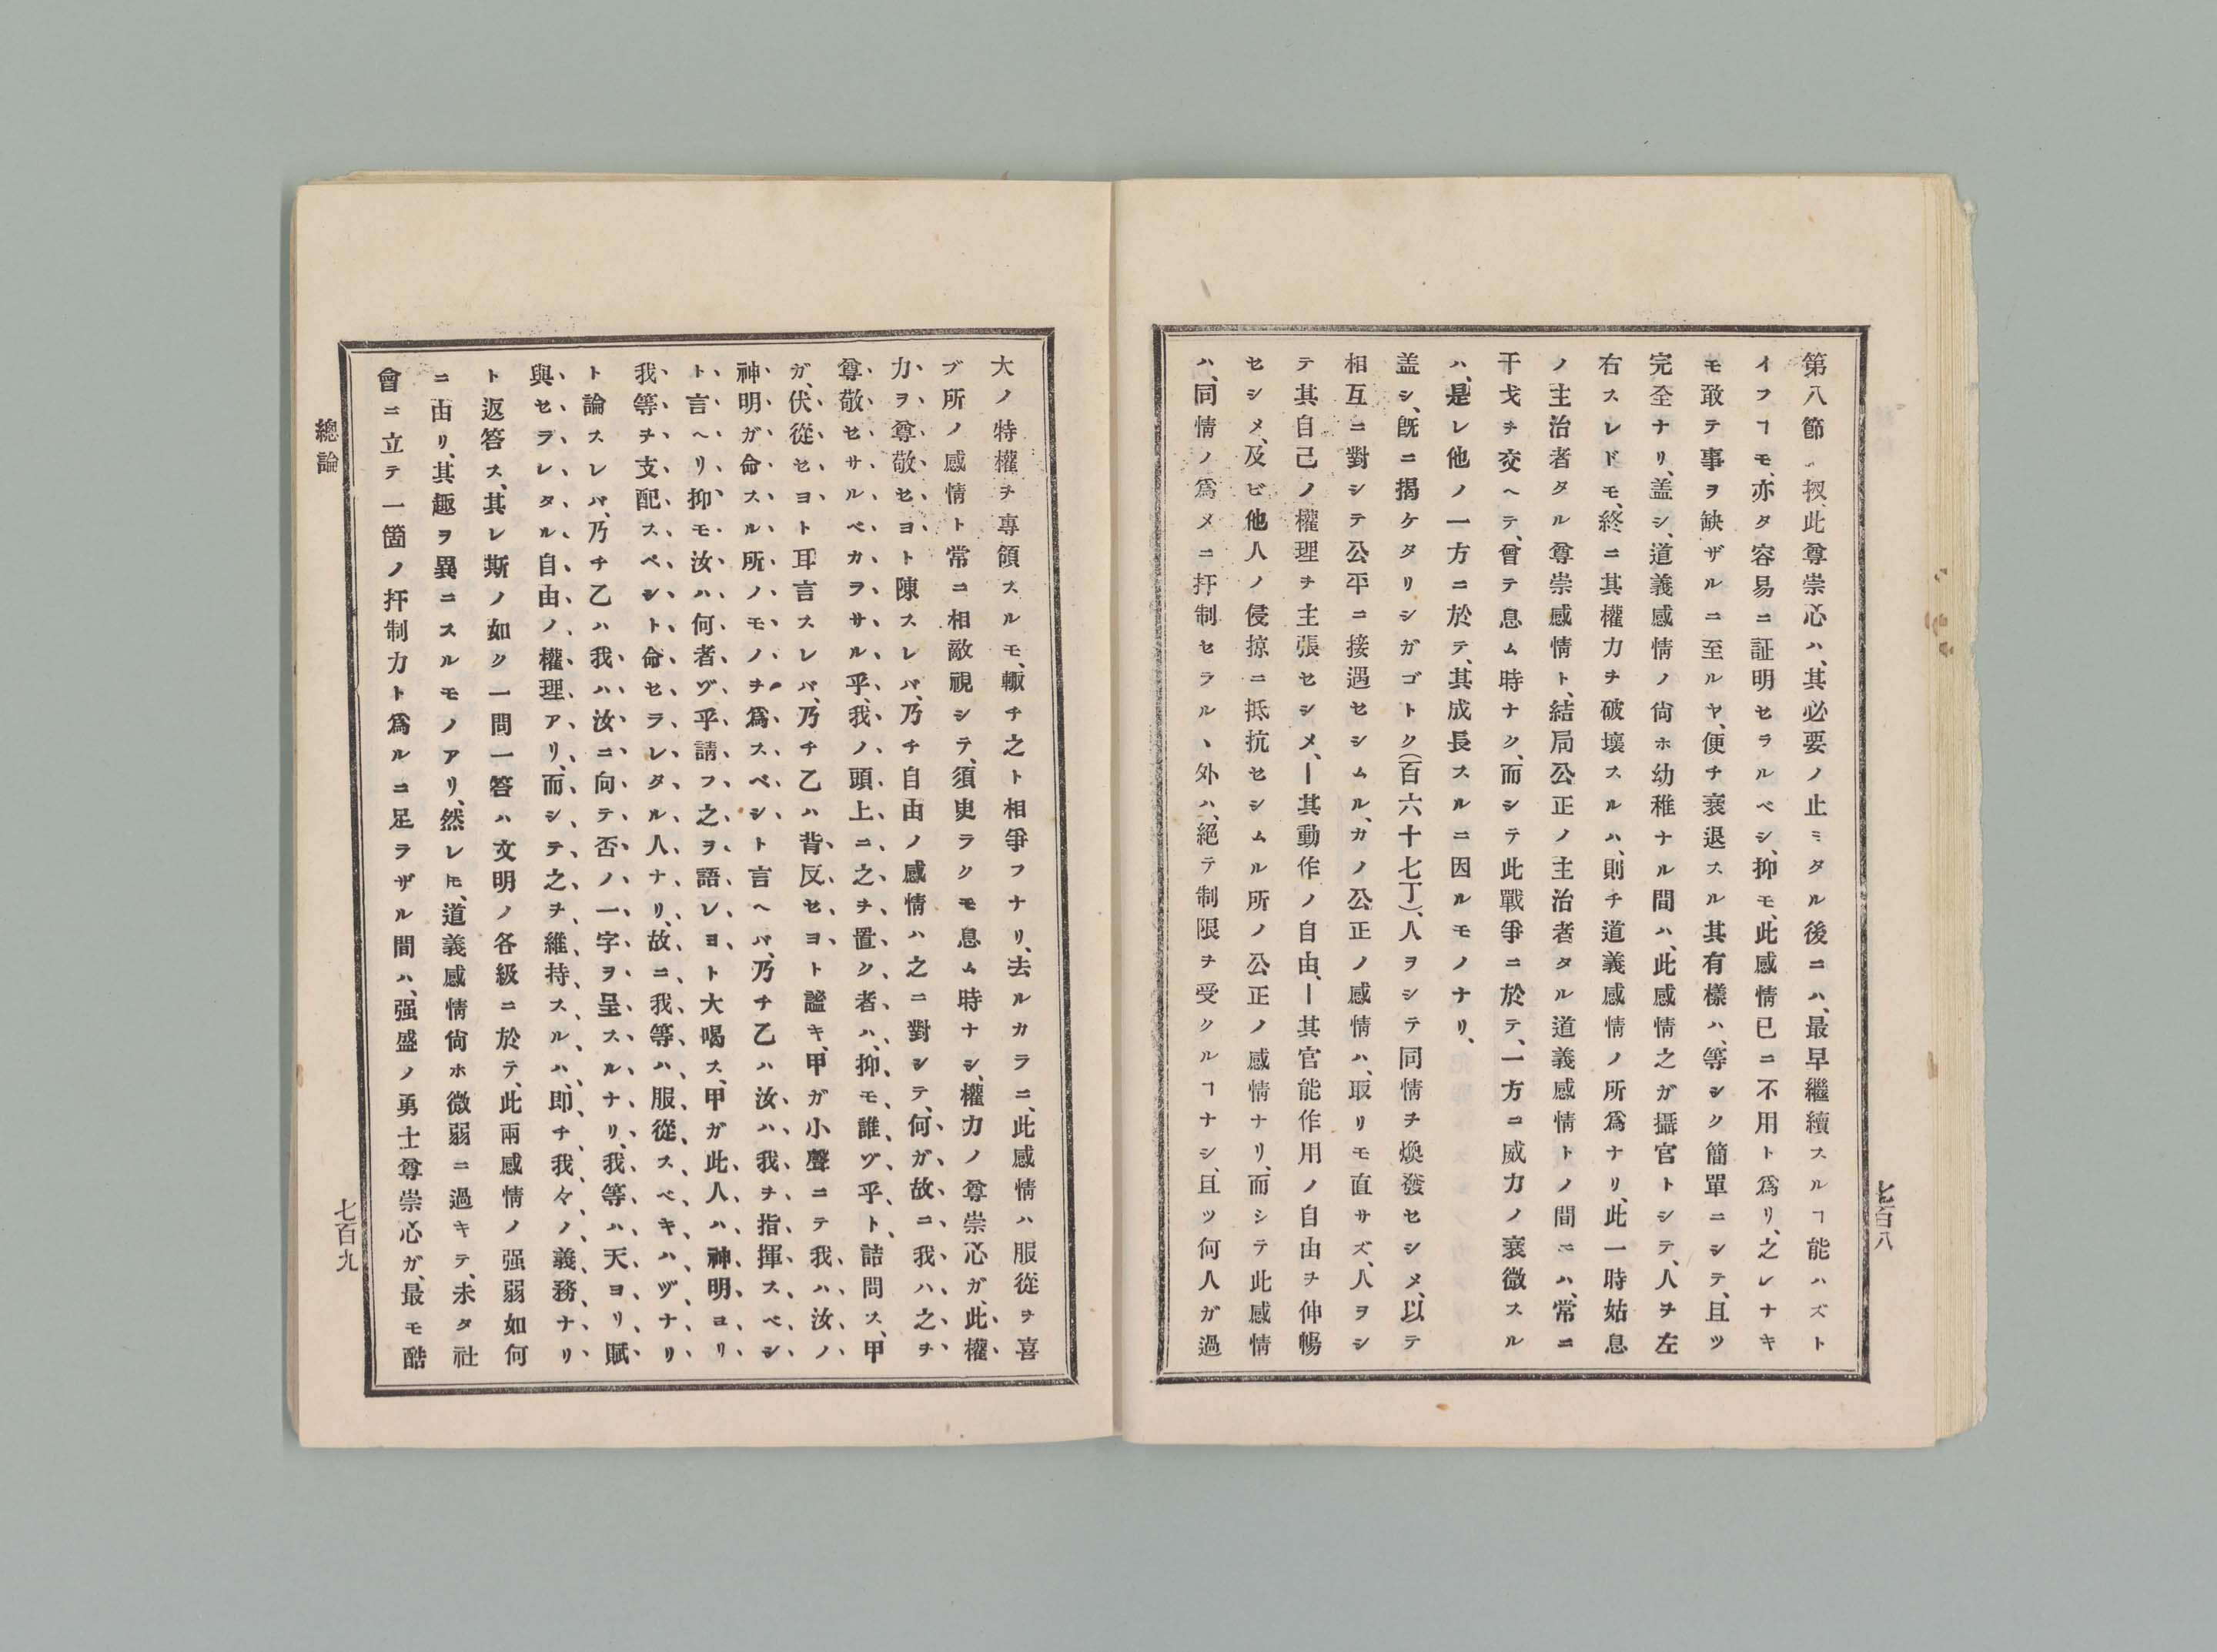 第八節 扨、此尊崇心ハ、其必要ノ止ミタル後ニハ、最早繼續スルヿ能ハズト
イフヿモ、亦タ容易ニ証明セラルベシ、抑モ、此感情已ニ不用ト爲リ、之レナキ
モ敢テ事ヲ缺ザルニ至ルヤ、便チ衰退スル其有樣ハ、等シク簡單ニシテ、且ツ
完全ナリ、盖シ、道義感情ノ尙ホ幼稚ナル間ハ、此感情之ガ攝官トシテ、人ヲ左
右スレドモ、終ニ其權力ヲ破壞スルハ、則チ道義感情ノ所爲ナリ、此一時姑息
ノ主治者タル尊崇感情ト、結局公正ノ主治者タル道義感情トノ間ニハ、常ニ
干戈ヲ交ヘテ、曾テ息ム時ナク、而シテ此戰爭ニ於テ、一方ニ威力ノ衰微スル
ハ、是レ他ノ一方ニ於テ、其成長スルニ因ルモノナリ、
盖シ、旣ニ揭ケタリシガゴトク(百六十七丁)、人ヲシテ同情ヲ煥發セシメ、以テ
相互ニ對シテ公平ニ接遇セシムル、カノ公正ノ感情ハ、取リモ直サズ、人ヲシ
テ其自己ノ權理ヲ主張セシメ、ー其動作ノ自由、ー其官能作用ノ自由ヲ伸暢
セシメ、及ビ他人ノ侵掠ニ抵抗セシムル所ノ公正ノ感情ナリ、而シテ此感情
ハ、同情ノ爲メニ扞制セラルヽ外ハ、絕テ制限ヲ受クルヿナシ、且ツ何人ガ過
七百八
大ノ特權ヲ專領スルモ、輙チ之ト相爭フナリ、去ルカラニ、此感情ハ服從ヲ喜
ブ所ノ感情ト常ニ相敵視シテ、須臾ラクモ息ム時ナシ、權力ノ尊崇心ガ、此權
力ヲ尊敬セヨト陳スレバ、乃チ自由ノ感情ハ之ニ對シテ、何ガ故ニ我ハ之ヲ
尊敬セサルベカラサル乎、我ノ頭上ニ之ヲ置ク者ハ、抑モ誰ゾ乎、ト詰問ス、甲
ガ、伏從セヨト耳言スレバ、乃チ乙ハ背反セヨト謐キ、甲ガ小聲ニテ我ハ汝ノ
神明ガ命スル所ノモノヲ爲スベシト言ヘバ、乃チ乙ハ汝ハ我ヲ指揮スベシ
ト言ヘリ抑モ汝ハ何者ゾ乎請フ之ヲ語レヨト大喝ス、甲ガ此人ハ神明ヨリ
我等ヲ支配スベシト命セラレタル人ナリ、故ニ我等ハ服從スベキハヅナリ
ト論スレバ、乃チ乙ハ我ハ汝ニ向テ否ノ一字ヲ呈スルナリ、我等ハ天ヨリ賦
與セラレタル自由ノ權理アリ、而シテ之ヲ維持スルハ、即チ我々ノ義務ナリ
ト返答ス、其レ斯ノ如ク一問一答ハ文明ノ各級ニ於テ、此兩感情ノ强弱如何
ニ由リ、其趣ヲ異ニスルモノアリ、然レ𪜈、道義感情尙ホ微弱ニ過キテ、未タ社
會ニ立テ一箇ノ扞制力ト爲ルニ足ラザル間ハ、强盛ノ勇士尊崇心ガ、最モ酷
總論
七百九